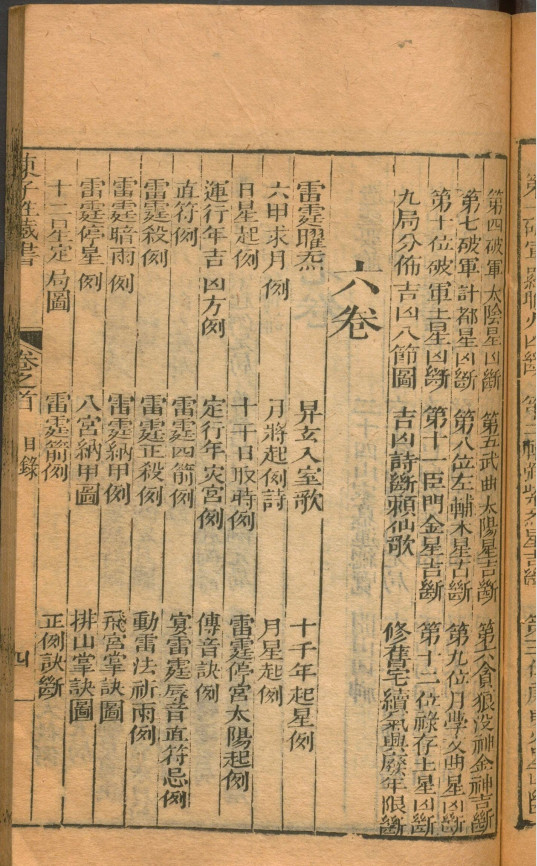 第四破軍太陰星凶斷　第五武曲太陽星吉斷　第六貪狼没神金神吉斷
第七破軍計都星凶斷　第八位左輔木星吉斷　第九位月孛文曲星凶斷
第十位破軍土星凶斷　第十一臣門金星吉斷　第十二位祿存土星凶斷
九局分佈吉凶八節圖　吉凶詩斷賴仙歌　修舊宅續氣興廢年限斷
六卷
雷霆曜炁　昇玄入室歌　十千年起星例
六甲求月例　月將起例詩　月星起例
日星起例　十干日取時例　雷霆停宮太陽起例
運行年吉凶方例　定行年灾宮例　傳音訣例
直符例　雷霆四箭例　雷霆唇音直符忌例
雷霆殺例　雷霆正殺例　動雷法祈雨例
雷霆暗雨例　雷霆納甲例　飛宮掌訣圖
雷霆停星例　八宮納甲圖　排山掌訣圖
十二吉星定局圖　雷霆箭例　正例訣斷
陳子性藏書　卷之首　目錄　四